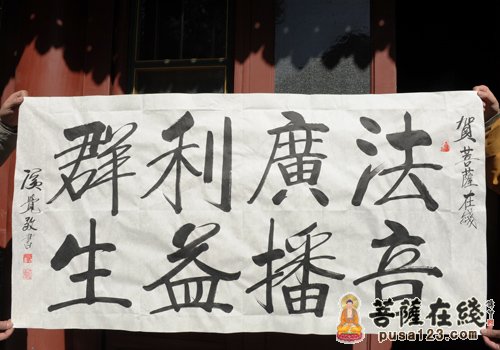 賀菩薩在綫
法音
廣播
利益
群生
演覺敬書
菩薩在綫
pusa123.com